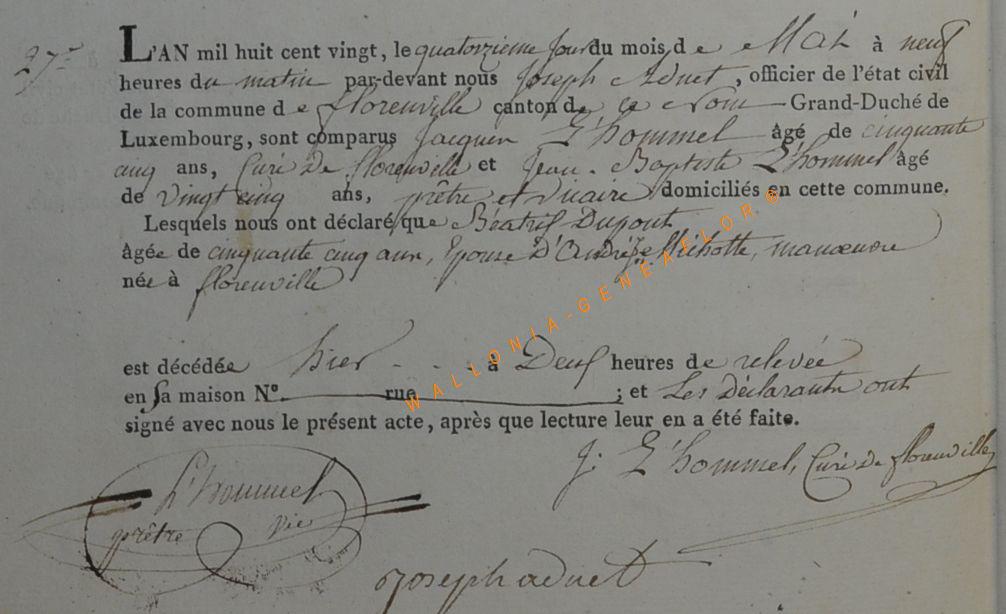 27e
L'AN mil huit cent vingt, le quatorzieme jour du mois de Mai à neuf
heures du matin par-devant nous Joseph Adnet, officier de l'état civil
de la commune de florenville canton de ce Nom Grand-Duché de
Luxembourg, sont comparus Jacques L'hommel âgé de cinquante
cinq ans, Curé de florenville et Jean-Baptiste L'hommel âgé
de vingt cinq ans, prêtre et vicaire domiciliés en cette commune.
Lesquels nous ont déclaré que Béatris Dupont
âgée de cinquante cinq ans, Epouse D'André Michotte, manoeuvre
née à florenville
est décédée hier - - - à Deux heures de relevée
en sa maison N°. rue ; et Les Déclarants ont
signé avec nous le présent acte, après que lecture leur en a été faite.
J: L'hommel, Curé de florenville
L'hommel
prêtre vic
Joseph adnet
WALLONIA-GENEAELOR©